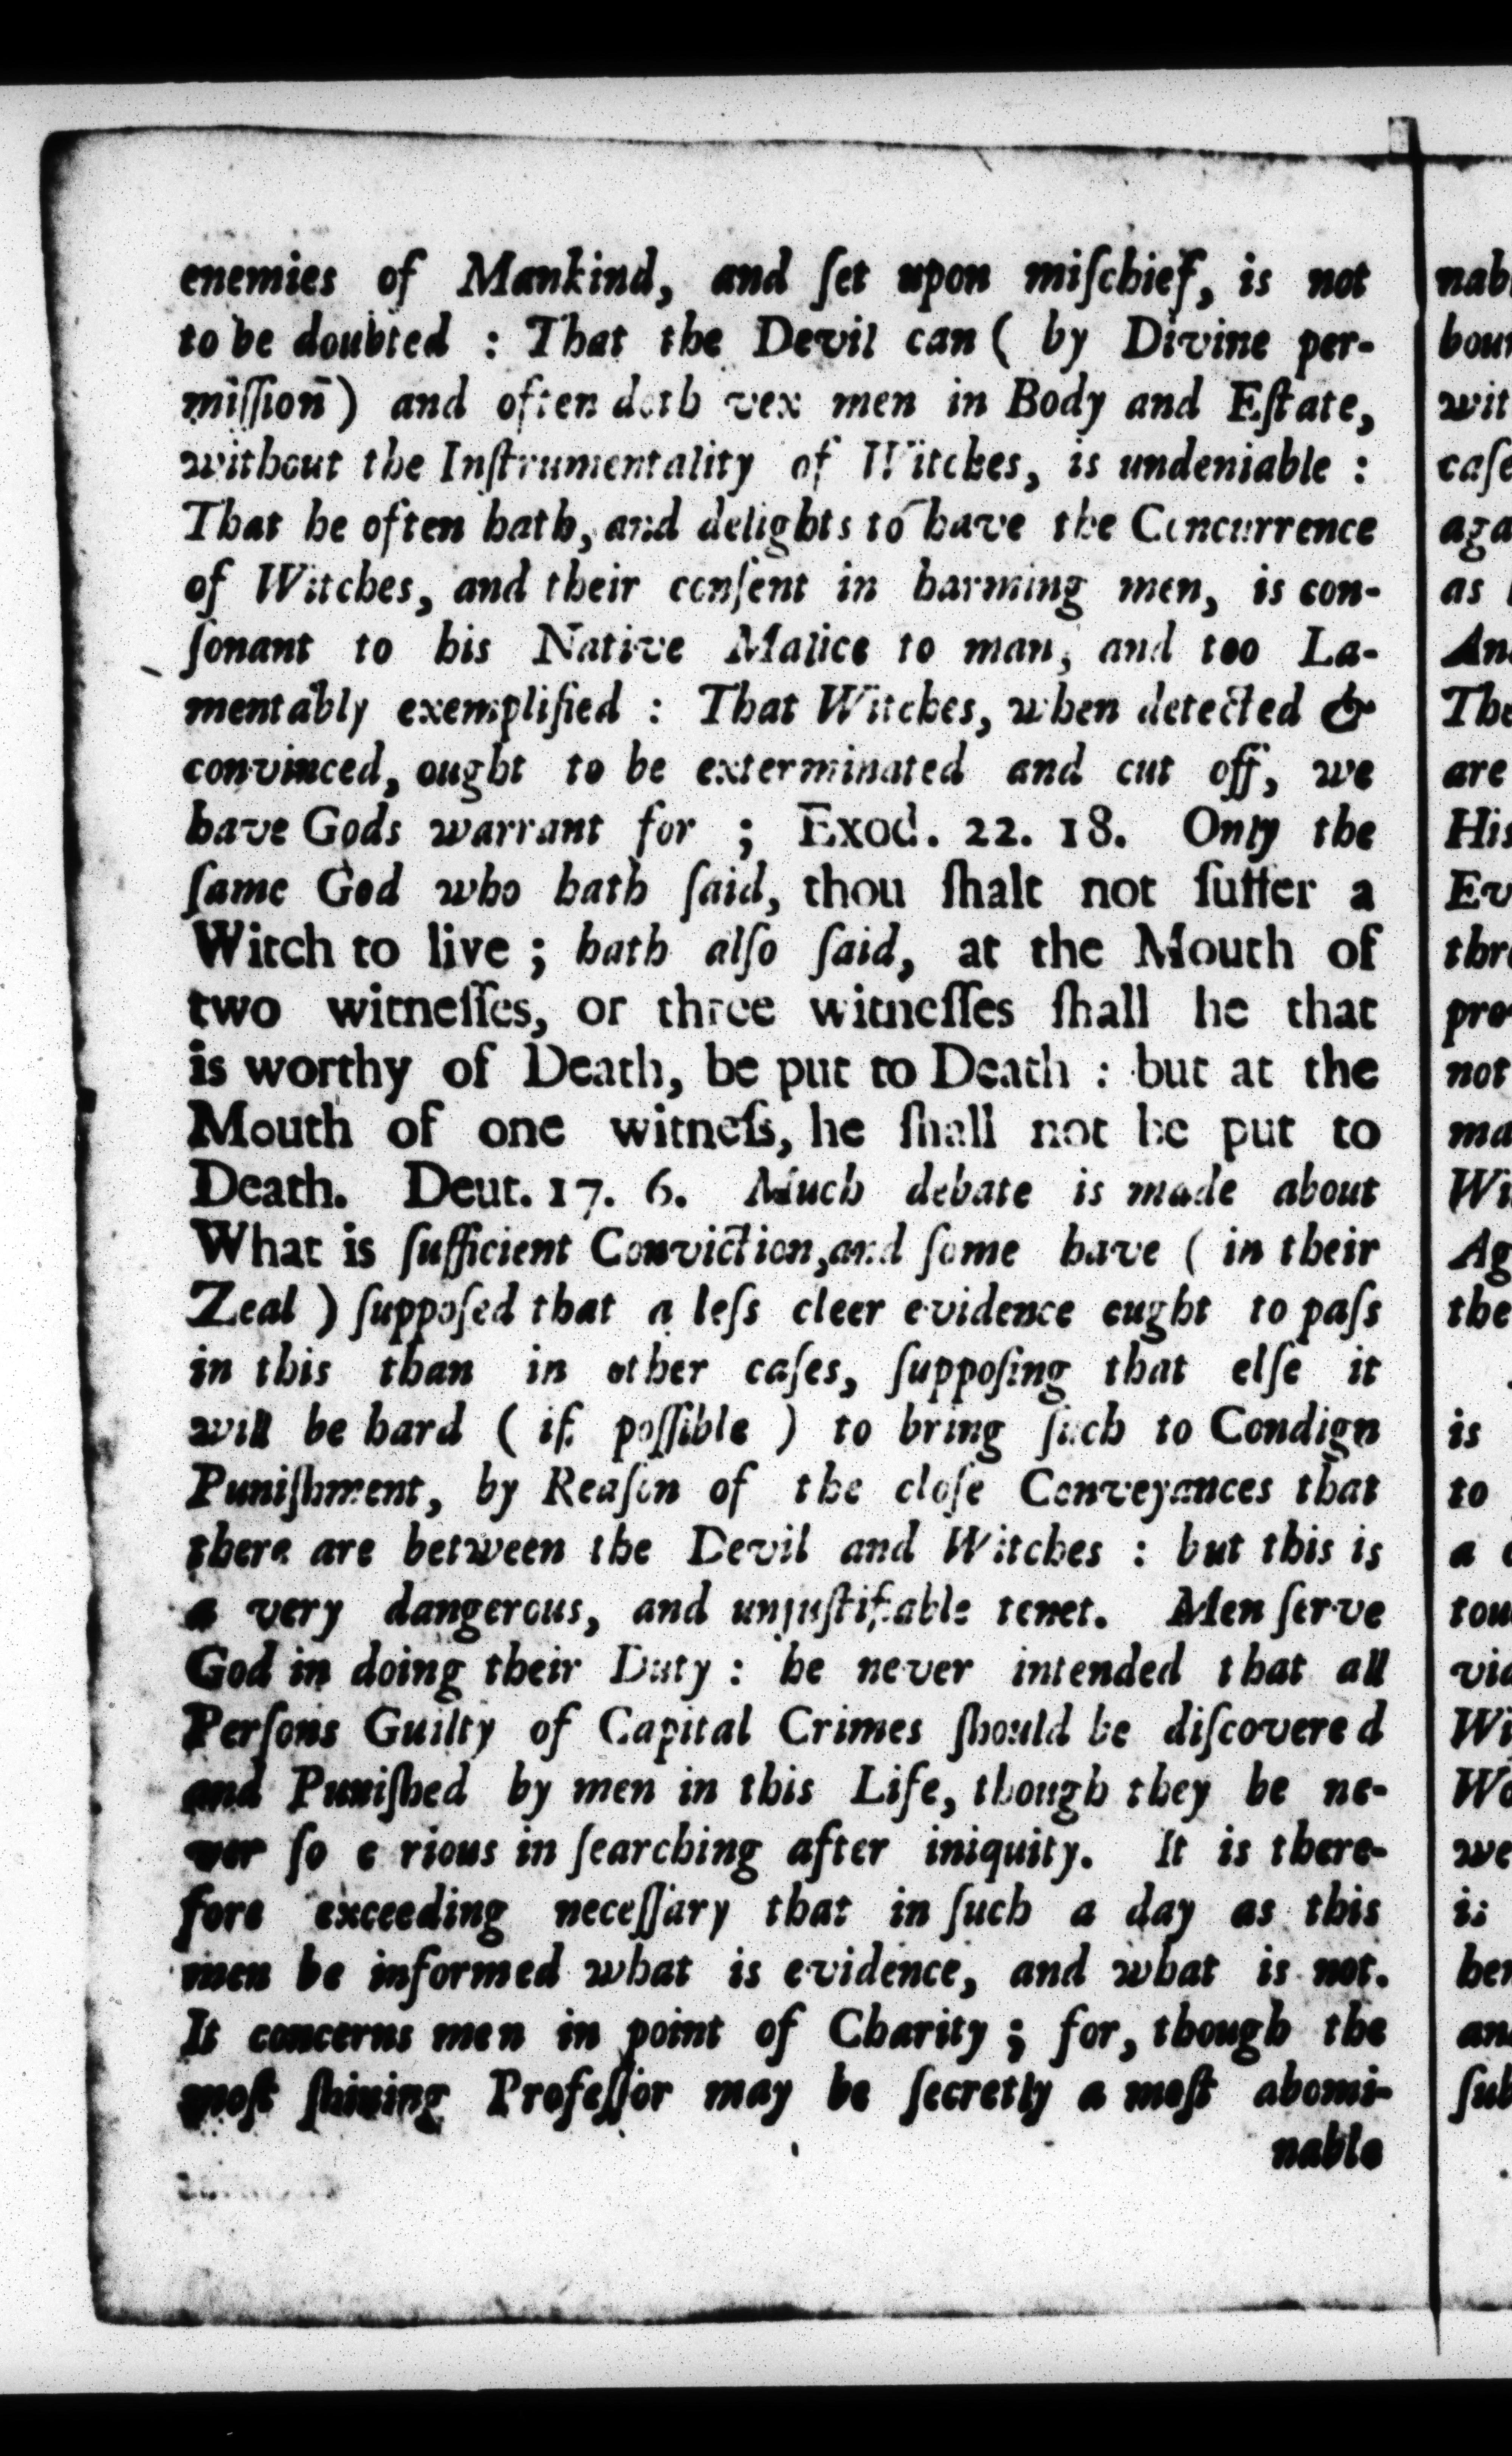 enemies of Mankind, and ſet upon miſchief, is not
to be doubted : That the Devil can ( by Divine per-
miſſion ) and often doth vex men in Body and Eſtate,
without the Inſtrumentality of Witches, is undeniable :
That he often hath, and delights to have the Concurrence
of Witches, and their conſent in harming men, is con-
ſonant to his Native Malice to man, and too La-
mentably exemplified : That Witches, when detected &
convinced, ought to be exterminated and cut off, we
have Gods warrant for ; Exod. 22. 18. Only the
ſame God who hath ſaid, thou ſhalt not ſuffer a
Witch to live ; hath alſo ſaid, at the Mouth of
two witneſſes, or three witneſſes ſhall he that
is worthy of Death, be put to Death : but at the
Mouth of one witneſs, he ſhall not be put to
Death. Deut. 17. 6. Much debate is made about
What is ſufficient Conviction, and ſome have ( in their
Zeal ) ſuppoſed that a leſs cleer evidence ought to paſs
in this than in other caſes, ſuppoſing that elſe it
will be hard ( if poſſible ) to bring ſuch to Condign
Puniſhment, by Reaſon of the cloſe Conveyances that
there are between the Devil and Witches : but this is
a very dangerous, and unjuſtifiable tenet. Men ſerve
God in doing their Duty : he never intended that all
Perſons Guilty of Capital Crimes ſhould be diſcovered
and Puniſhed by men in this Life, though they be ne-
ver ſo c rious in ſearching after iniquity. It is there-
fore exceeding neceſſary that in ſuch a day as this
men be informed what is evidence, and what is not.
It concerns men in point of Charity ; for, though the
moſt ſhining Profeſſor may be ſecretly a moſt abomi-
nable